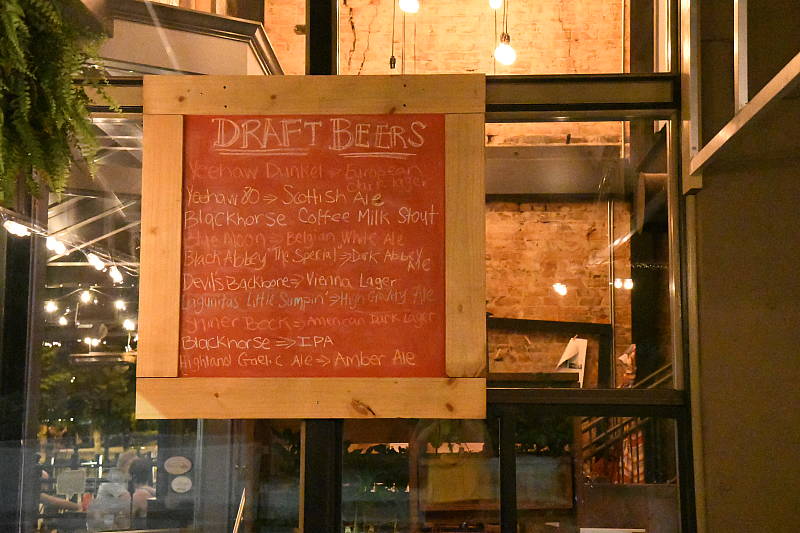 DRAFT BEERS
Yeehaw Dunkel => European
dark lager
Yeehaw 80 => Scottish Ale
Blackhorse Coffee Milk Stout
Blue Moon => Belgian White Ale
Black Abbey The Special => Dark Abbey
Ale
Devil's Backbone => Vienna Lager
Lagunitas Little Sumpin' => High Gravity Ale
Shiner Bock => American Dark Lager
Blackhorse => IPA
Highland Gaelic Ale => Amber Ale